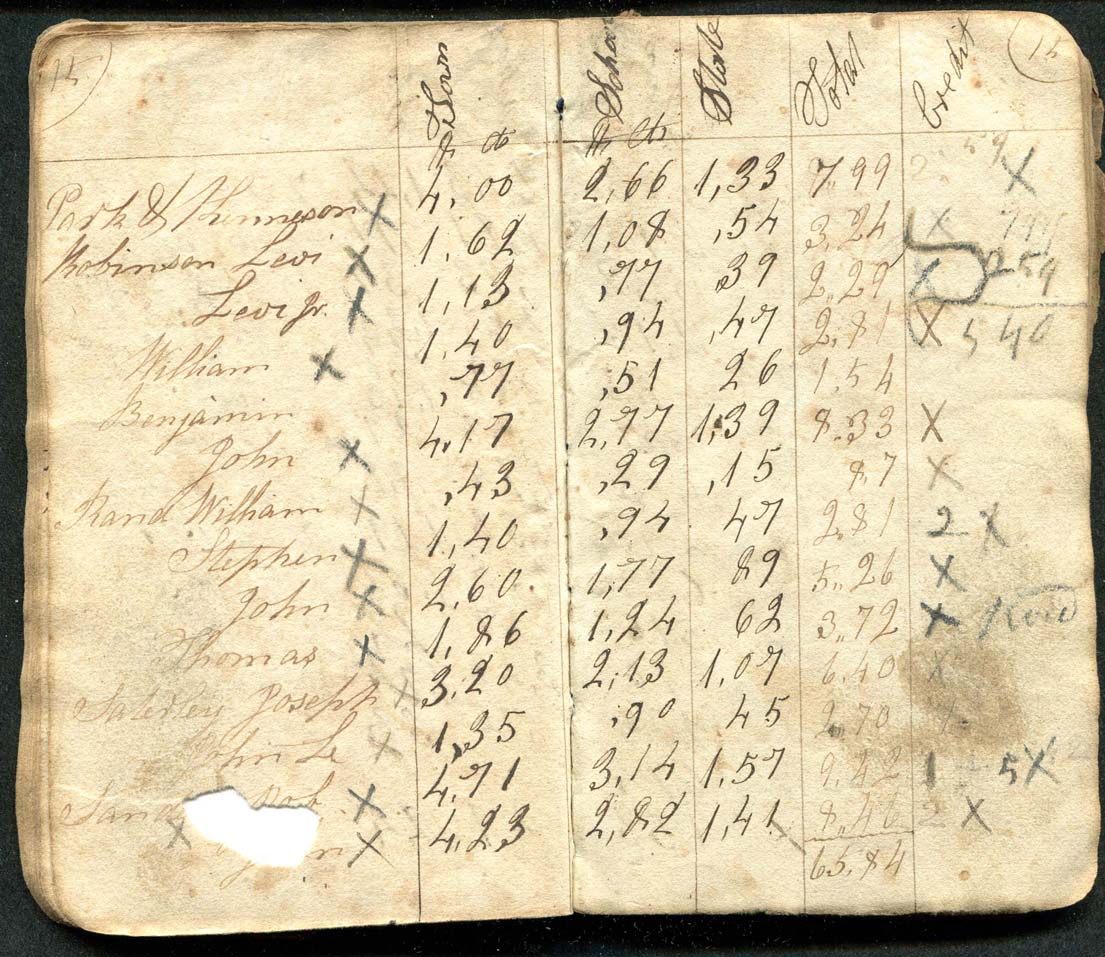 15 15
Town School State Total Credit
Park & Thenneson X 4,00 2,66 1,33 7,99 2. 59 X
Robinson Levi X 1,62 1,08 ,54 3,24 X 799
Levi Jr. X 1,13 ,77 39 2,29 X 259
William X 1,40 ,94 ,47 2,81 X 5 40
Benjamin ,77 ,51 26 1,54
John X 4,17 2,77 1,39 8.33 X
Rand William X ,43 ,29 ,15 8,7 X
Stephen X 1,40 ,94 47 2,81 2 X
John X 2,60 1,77 89 5,,26 X
Thomas X 1,86 1,24 62 3,,72 X
Joseph X 3,20 2,13 1,07 6,40 X
John X 1,35 ,90 45 2,70
X 4,71 3,14 1,57 9,42 1 5X
X X 4,23 2,82 1,41 8,46 2 X
65,84